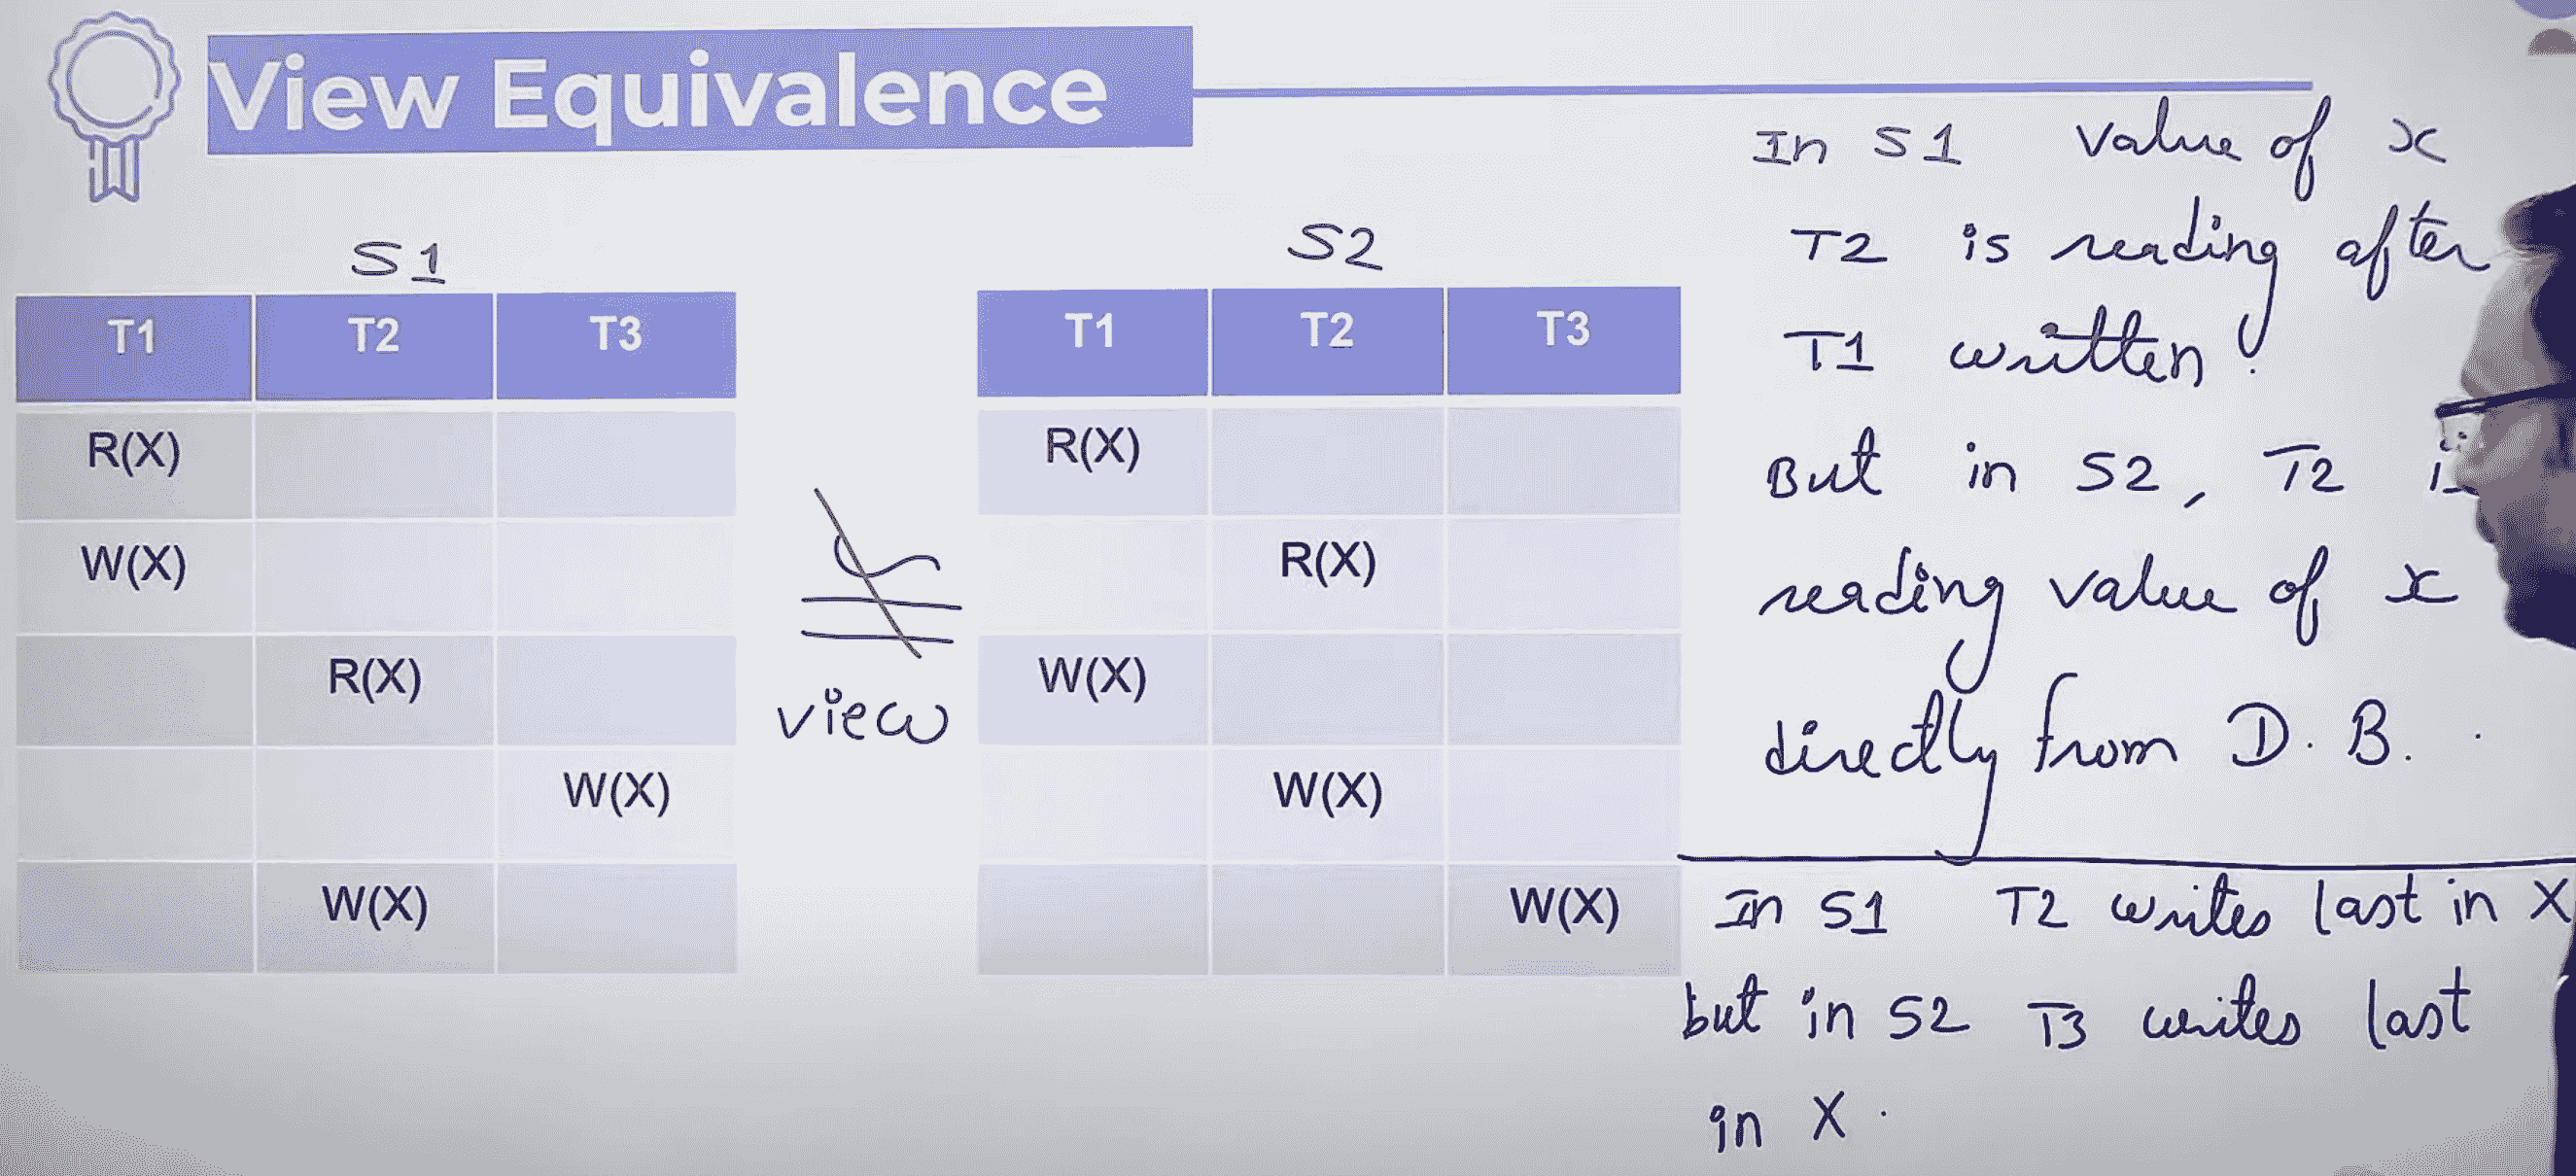 View Equivalence
S1
T1 T2 T3
R(X)
W(X)
R(X)
W(X)
W(X)
view
S2
T1 T2 T3
R(X)
R(X)
W(X)
W(X)
W(X)
In S1 value of x
T2 is reading after
T1 written.
But in S2, T2
reading value of x
directly from D.B.
In S1 T2 writes last in X
but in S2 T3 writes last
in X.